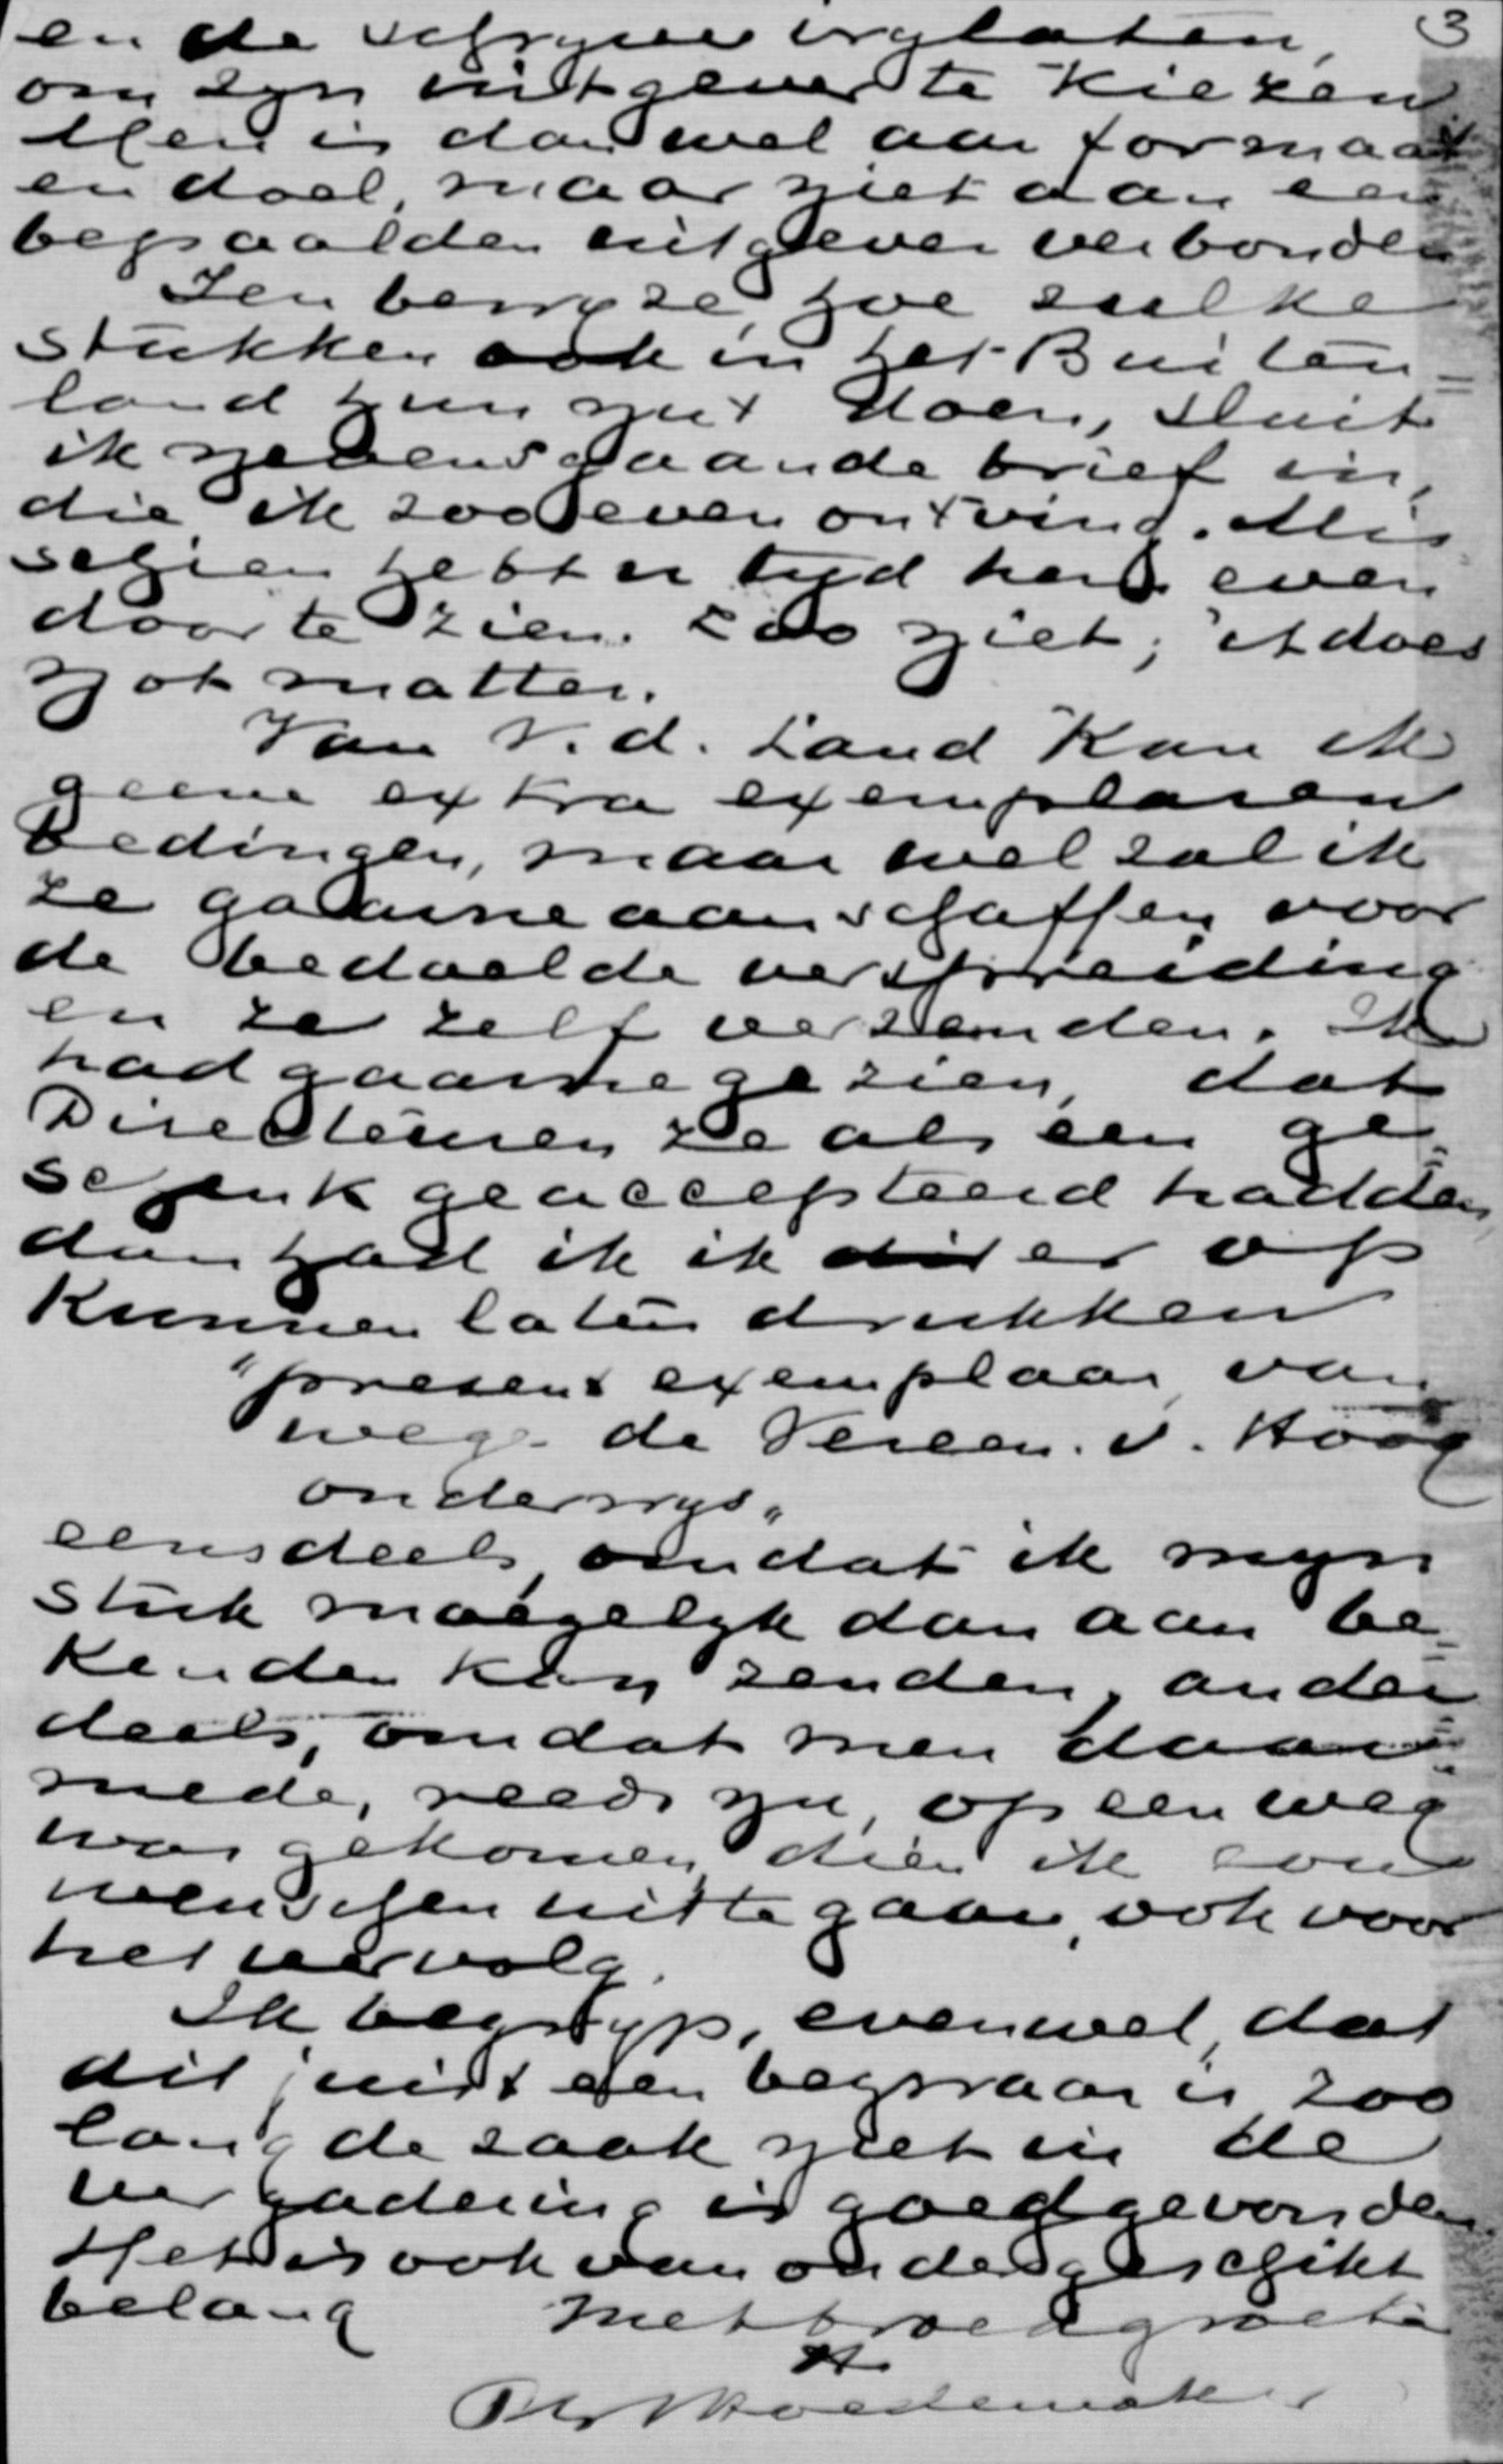 3
en de schryver vrylaten,
om zyn uitgever te kiezen
Men is dan wel aan formaat
en doel, maar niet aan een
bepaalden uitgever verbonden
Ten bewyze, hoe zulke
stukken ook in het Buiten=
land hun nut doen, sluit
ik nevensgaande brief in,
die ik zoo even ontving. Mis
schien hebt er tyd hem even
door te zien. Zoo niet; it does
not matter.
Van v. d. Land kan ik
geene extra exemplaren
bedingen, maar wel zal ik
ze gaarne aanschaffen voor
de bedoelde verspreiding
en ze zelf verzenden. Ik
had gaarne gezien, dat
Directeuren ze als een ge=
schenk geaccepteerd hadden,
dan had ik ik er op
kunnen laten drukken
"present exemplaar van
wege de Vereen. v. Hoog
onderwys"
eensdeels, omdat ik myn
stuk moegelyk dan aan be
kenden kan zenden, ander
deels, omdat men daar=
mede, reeds nu, op een weg
was gekomen, dien ik zou
wenschen uit te gaan, ook voor
het vervolg.
Ik begryp, evenwel, dat
dit juist een bezwaar is zoo
lang de zaak niet in de
vergadering is goedgevonden.
Het is ook van ondergeschikt
belang
Met broedgroete
tt
Ph J Hoedemaker